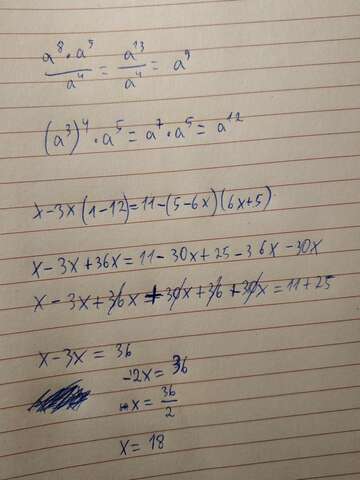 a⁸·a⁵/a⁴ = a¹³/a⁴ = a⁹
(a³)⁴·a⁵ = a⁷·a⁵ = a¹²
x-3x(1-12)=11-(5-6x)(6x+5)
x-3x+36x=11-30x+25-36x-30x
x-3x+36x+30x+36+30x=11+25
x-3x=36
-2x=36
-x=36/2
x=18